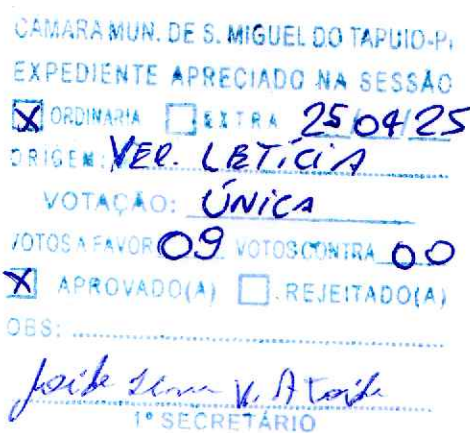 CAMARA MUN. DE S. MIGUEL DO TAPUIO-PI
EXPEDIENTE APRECIADO NA SESSÃO
X ORDINARIA EXTRA 25/04/25
ORIGEM: VER. LETÍCIA
VOTAÇÃO: ÚNICA
VOTOS A FAVOR 09 VOTOS CONTRA 00
X APROVADO(A) REJEITADO(A)
OBS:
1º SECRETÁRIO